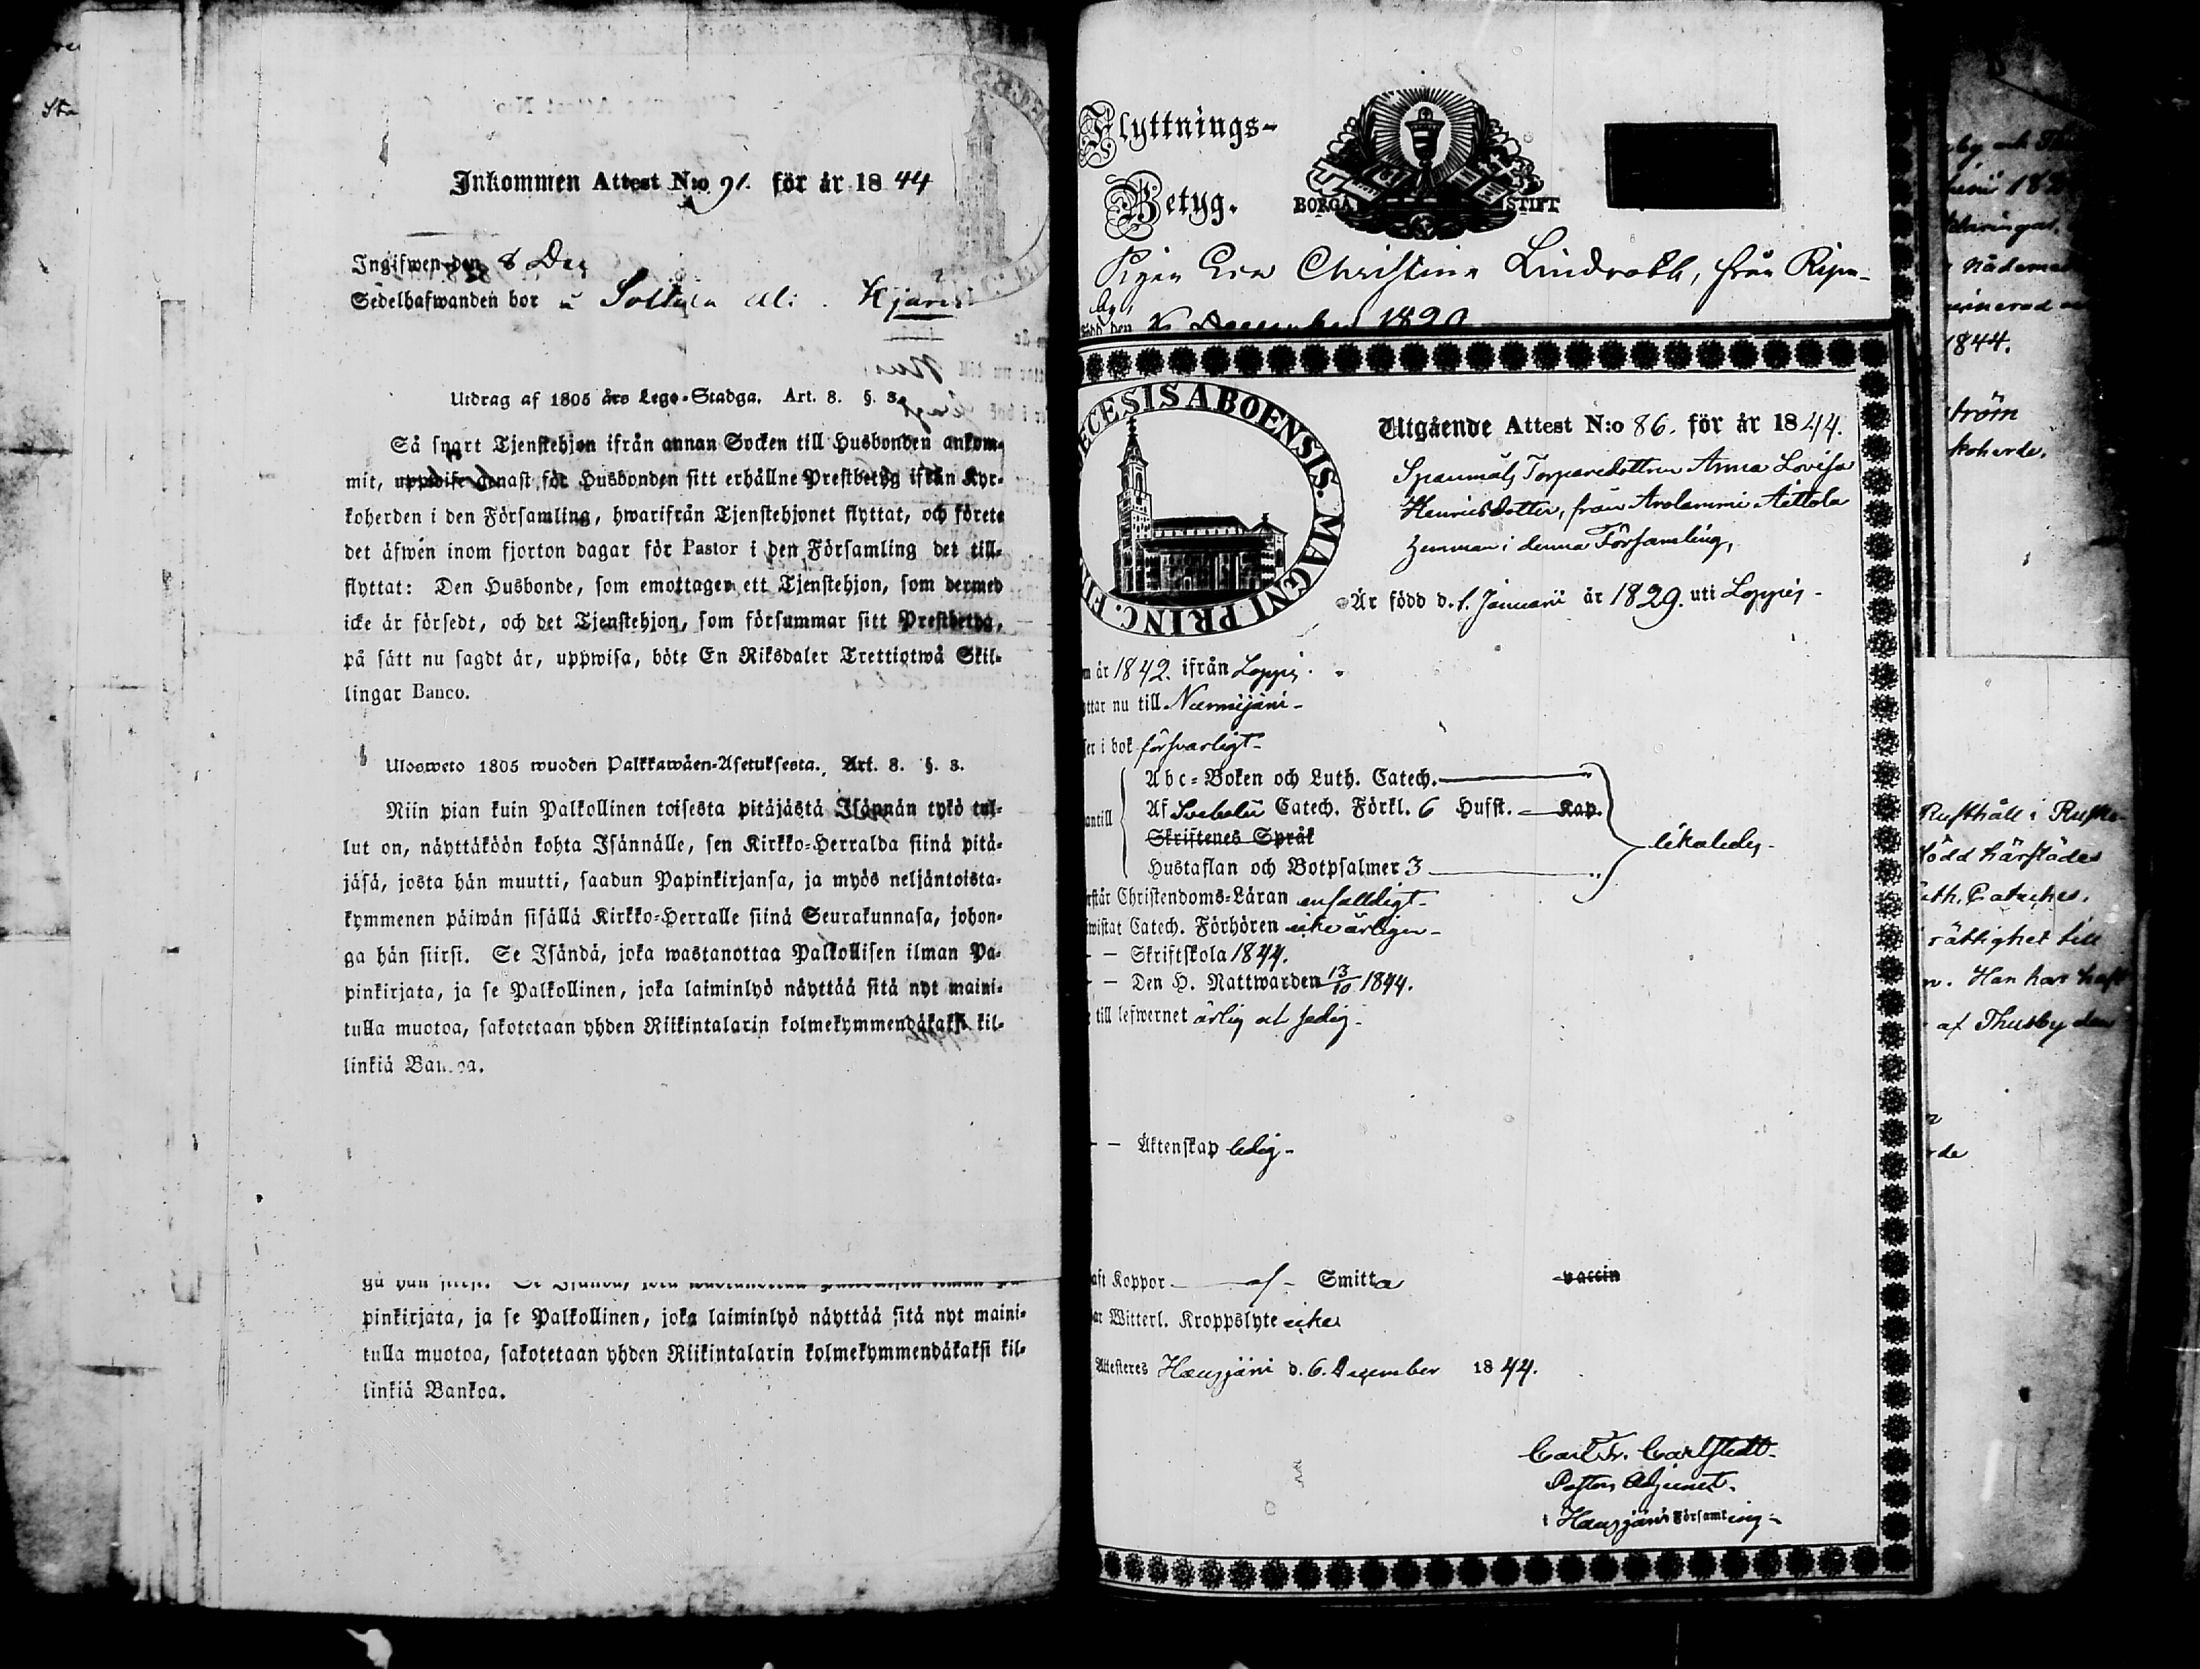 Inkommen Attest N:o 91. för år 1844
Ingifwen den 8 Dec
Sedelhafwanden bor
Utdrag af 1805 års Lego-Stadga. Art. 8. §. 3.
Så snart Tjenstehjon ifrån annan Socken till Husbonden ankom-
mit, uppwise genast för Husbonden sitt erhållne Prestbetyg ifrån Kyr-
koherden i den Församling, hwarifrån Tjenstehjonet flyttat, och förete
det äfwen inom fjorton dagar för Pastor i den Församling det till-
flyttat: Den Husbonde, som emottager ett Tjenstehjon, som dermed
icke är försedt, och det Tjenstehjon, som försummar sitt Prestbetyg,
på sätt nu sagdt är, uppwisa, böte En Riksdaler Trettiotwå Skil-
lingar Banco.
Ulosweto 1805 wuoden Palkkawäen-Asetuksesta. Art. 8. §. 3.
Niin pian kuin Palkollinen toisesta pitäjästä Isännän tykö tul-
lut on, näyttäköön kohta Isännälle, sen Kirkko-Herralda siinä pitä-
jäsä, josta hän muutti, saadun Papinkirjansa, ja myös neljäntoista-
kymmenen päiwän sisällä Kirkko-Herralle siinä Seurakunnasa, johon-
ga hän siirsi. Se Isändä, joka wastanottaa Palkollisen ilman Pa-
pinkirjata, ja se Palkollinen, joka laiminlyö näyttää sitä nyt maini-
tulla muotoa, sakotetaan yhden Riikintalarin kolmekymmendäkaksi kil-
linkiä Bankoa.
pinkirjata, ja se Palkollinen, joka laiminlyö näyttää sitä nyt maini-
tulla muotoa, sakotetaan yhden Riikintalarin kolmekymmendäkaksi kil-
linkiä Bankoa.
Flyttnings-
Betyg.
BORGÅ STIFT
Pigan Eva Christina Lindroth, från
December 1820
ECESIS ABOENSIS. MAGNI PRINC. FI
Utgående Attest N:o 86. för år 1844.
Spanmåls Torparedottren Anna Lovisa
Henricsdotter, från Arolammi Aittola
hemman i denna Församling,
Är född d. 1. Januarii år 1829. uti Loppis
m år 1842. ifrån Loppis.
yttar nu till Nurmijärvi
ser i bok försvarligt
antill
Abc-Boken och Luth. Catech.
Af Svebelii Catech. Förkl. 6 Hufst. Kap.
Skriftenes Språk
Hustaflan och Botpsalmer 3
likaledes
rstår Christendoms-Läran enfalldigt
iwistat Catech. Förhören icke årligen
— Skriftskola 1844.
— Den H. Nattwarden 13/10 1844.
till lefwernet ärlig och sedig
— Äktenskap ledig
aft Koppor af Smitta vaccin
ar Witterl. Kroppslyte icke
Attesteres Hausjärvi d. 6. December 1844.
Carl Fr. Carlstedt
Pastors Adjunct
i Hausjärvi Församling
by och
1844.
ström
koherde.
Rusthåll i
född härstädes
uth. Cateches.
rättighet till
Han har haft
af Thusby den